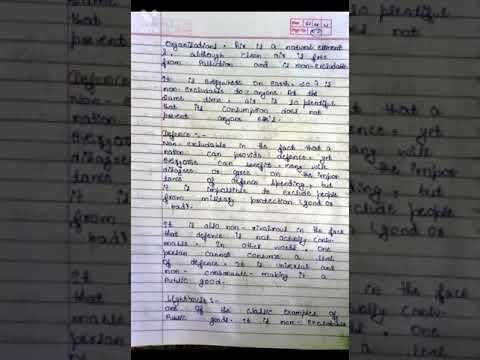 Organizations. Air is a natural element
, although clean air is free
from Pollution and is non-excludable
It is everywhere on earth, so it is
non-excludable to anyone. At the
same time, air is so plentiful
that its consumption does not
prevent anyone else's.
Defence :-
Non-excludable in the fact that a
nation can provide defence, yet
everyone can benefit many will
disagree or agree on the impor
tance of defence spending, but
it is impossible to exclude people
from military protection (good or
bad).
It is also non-rivalrous in the fact
that defence is not actually consu-
mable. In other words, one
person cannot consume a lot
of defence. It is universal and
non-consumable making it a
Public good.
Lighthouse :-
one of the classic examples of
Public goods. It is non-excludable